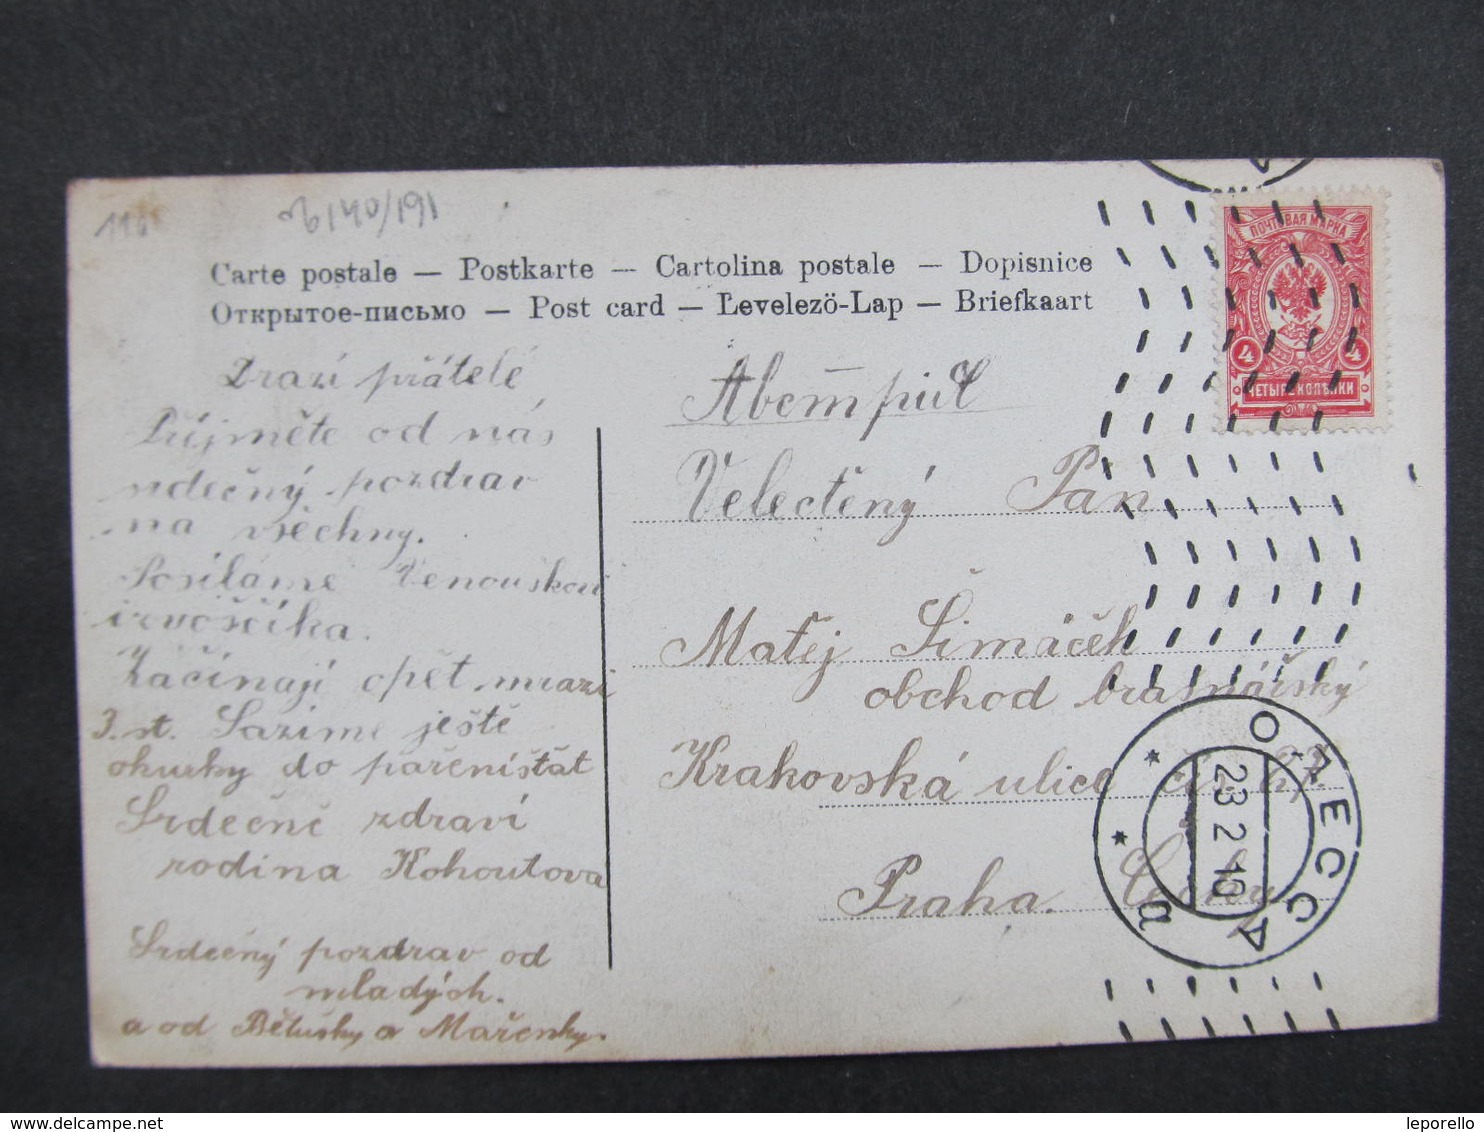 116
Carte postale — Postkarte — Cartolina postale — Dopisnice
Открытое-письмо — Post card — Levelező-Lap — Briefkaart
ПОЧТОВАЯ МАРКА
4 4
ЧЕТЫРЕ КОПѢЙКИ
Drazí přátelé
Přijměte od nás
srdečný pozdrav
na všechny.
Posíláme Venouškovi
izvoščíka.
Začínají opět mrazi
3. st. Sazíme ještě
okurky do pařeništat
Srdečně zdraví
rodina Kohoutova
Srdečný pozdrav od
mladých.
a od Bětušky a Mařenky.
Velectěný Pan
Matěj Šimáček
obchod brašnářský
Krakovská ulice čís.
Praha. Čechy
ОДЕССА
23 2 10
а
leporello